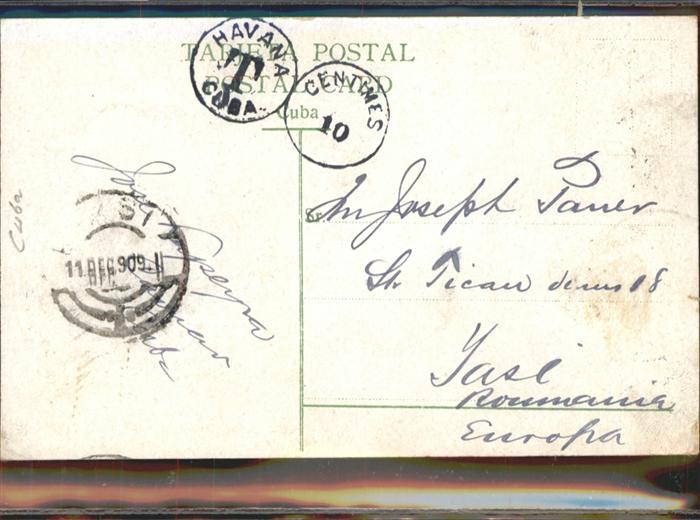 TARJETA POSTAL
POSTAL CARD
Cuba
HAVANA
T
CUBA.
CENTIMES
10
Sr.
Mr Joseph Paner
Str. Ticau demus 18
Yasi
Roumania
Europa
11.DEC.909.11
Cuba